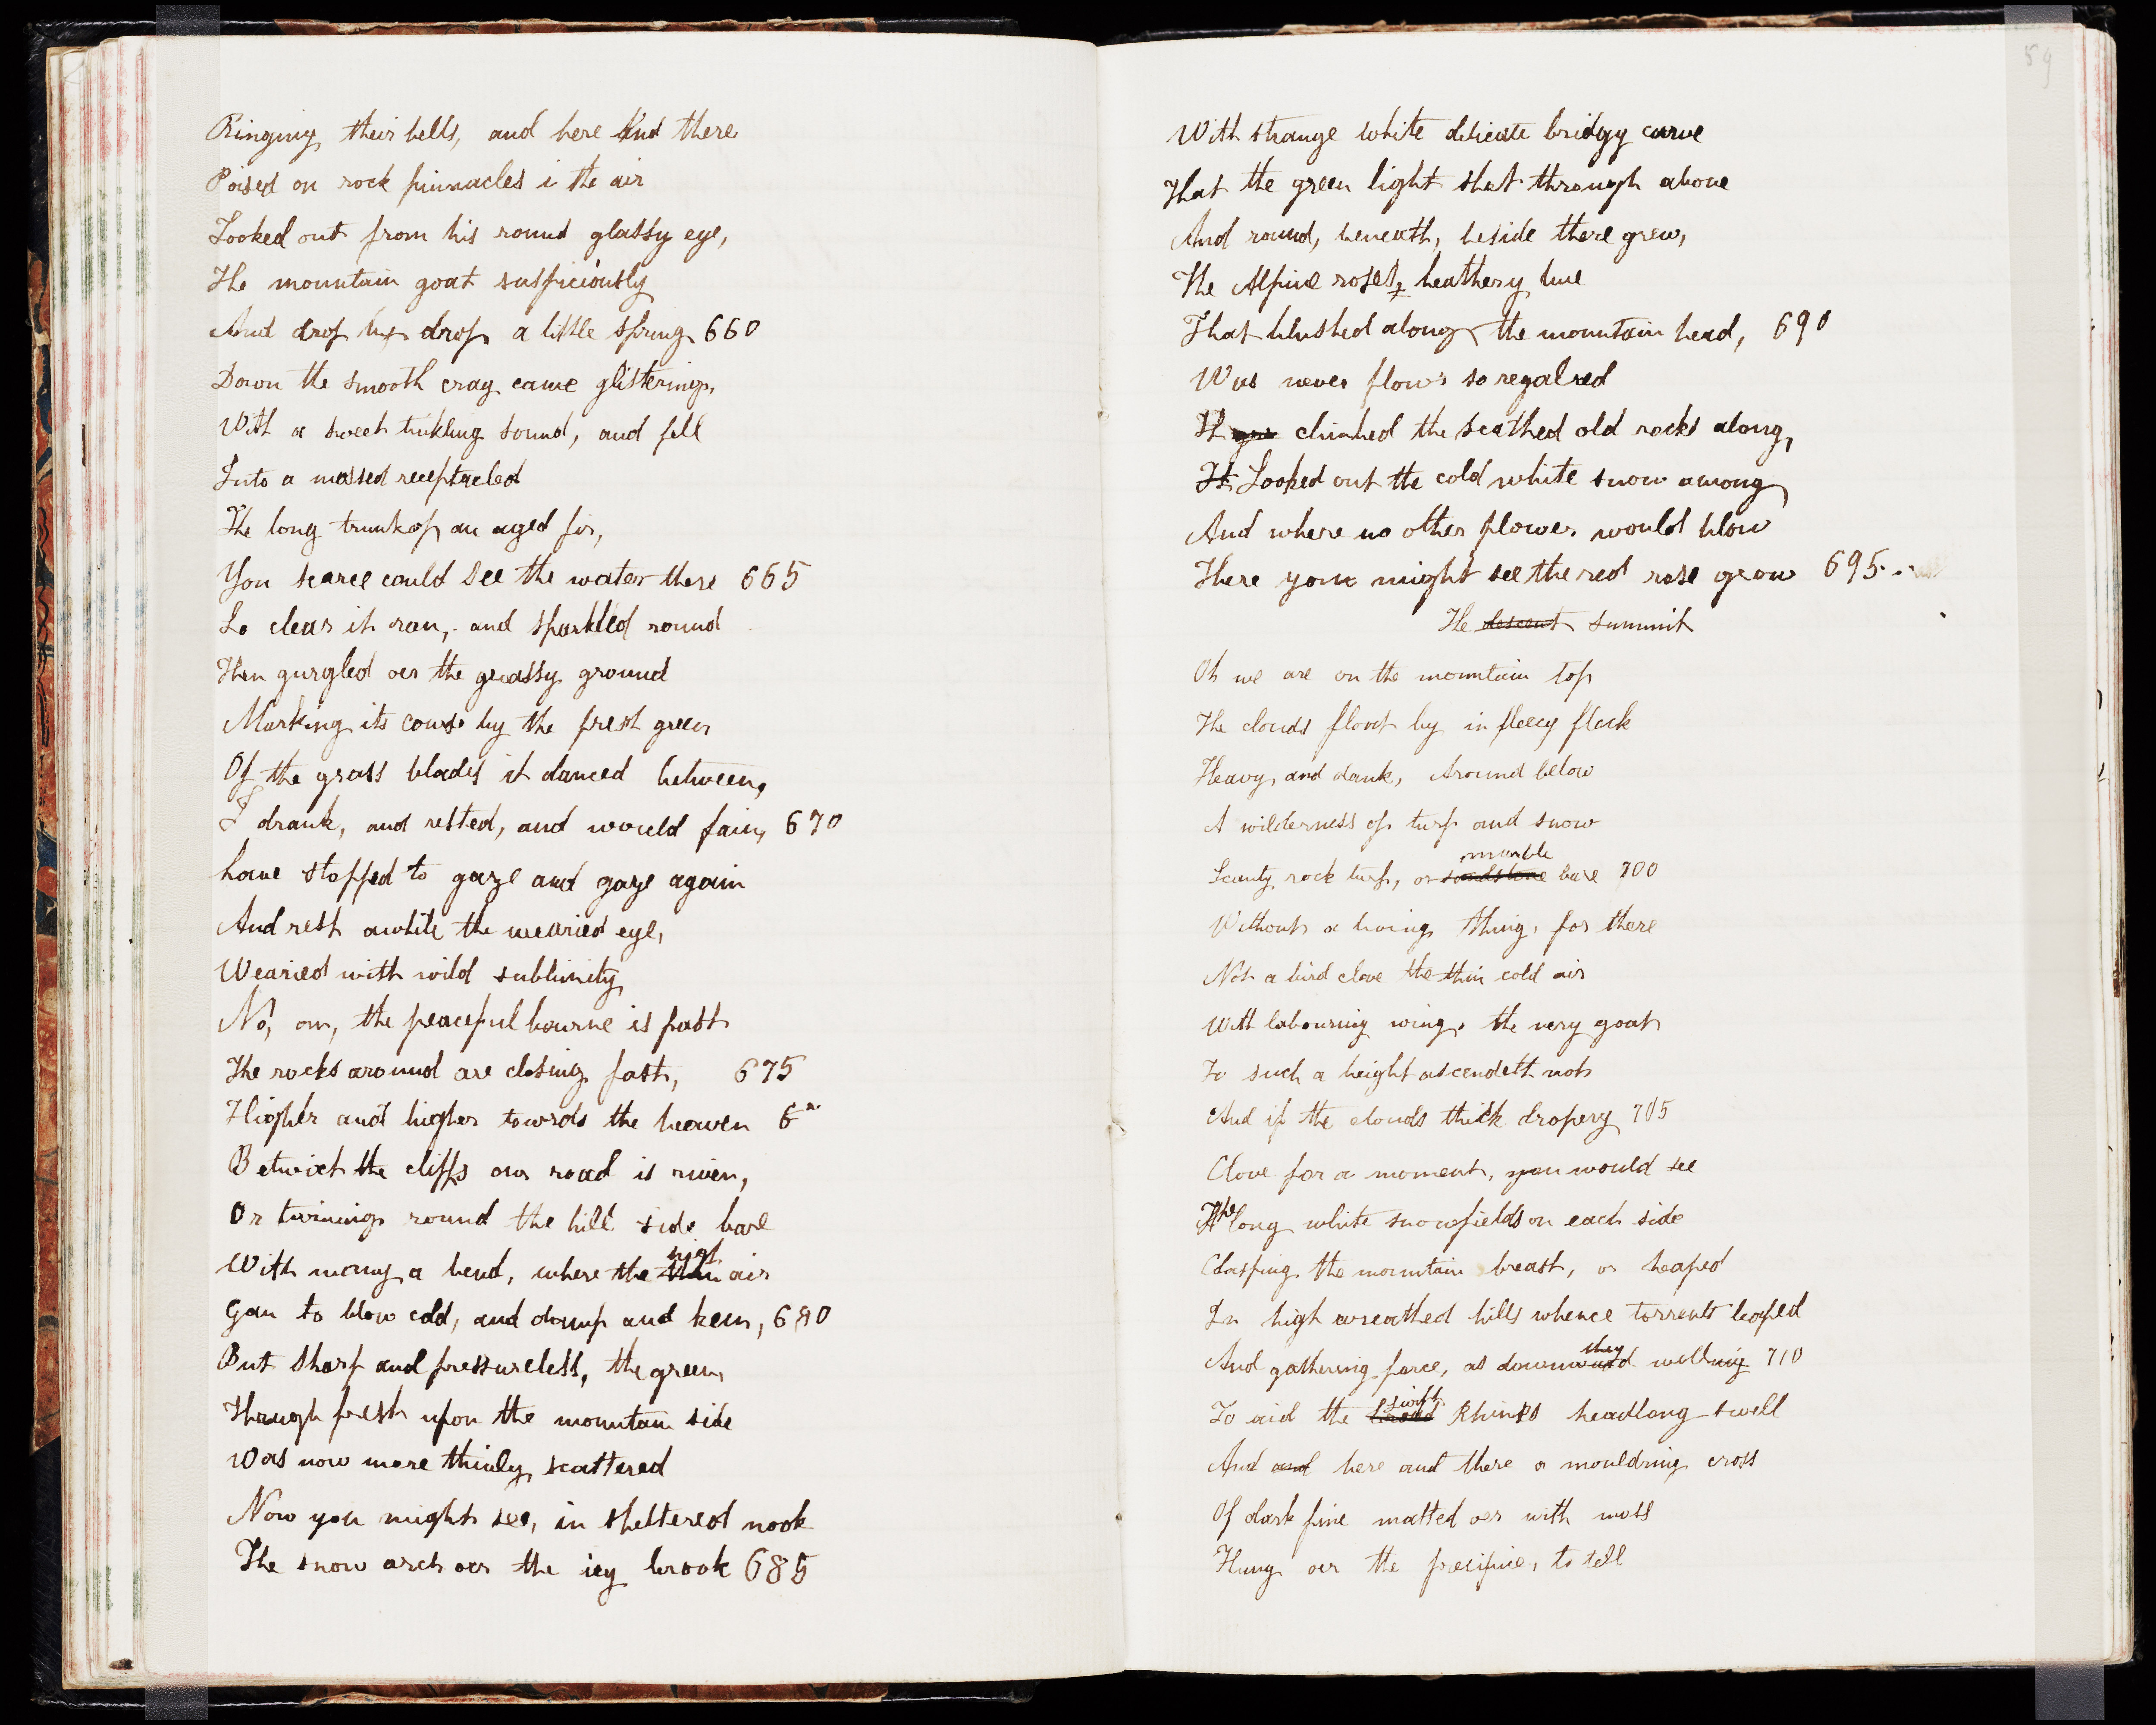 Ringing their bells, and here and there
Poised on rock pinnacles i the air
Looked out from his round glassy eye,
The mountain goat suspiciously
And drop by drop a little spring 660
Down the smooth crag came glistering,
With a sweet tinkling sound, and fell
Into a mossed receptacled
The long trunk of an aged fir,
You scarce could see the water there 665
So clear it ran, and sparkled round
Then gurgled oer the grassy ground
Marking its course by the fresh green
Of the grass blades it danced between,
I drank, and rested, and would fain, 670
have stopped to gaze and gaze again
And rest awhile the wearied eye,
Wearied with wild sublimity
No, on, the peaceful bourne is past
The rocks around are closing fast, 675
Higher and higher towrds the heaven 6
Betwixt the cliffs our road is riven,
Or twining round the hill side bare
With many a bend, where the thin nigt air
Gan to blow cold, and damp and keen, 680
But sharp and pressureless, the green,
Though fresh upon the mountain side
Was now more thinly scattered
Now you might see, in sheltered nook
The snow arch oer the icy brook 685
59
With strange white delicate bridgy curve
That the green light shot through above
And round, beneath, beside there grew,
The Alpine roses, heathery hue
That blushed along the mountain head, 690
Was never flower so regal red
It climbed the scathed old rocks along,
It Looked out the cold white snow among
And where no other flower would blow
There you might see the red rose grow 695
The descent summit
Oh we are on the mountain top
The clouds float by in fleecy flock
Heavy, and dank, Around below
A wilderness of turf and snow
Scanty rock turf, or sandstone marble bare 700
Without a living thing, for there
Not a bird clove the thin cold air
With labouring wing, the very goat
To such a height ascendeth not
And if the clouds thick drapery 705
Clove for a moment, you would see
The long white snowfields on each side
Clasping the mountain breast, or heaped
In high wreathed hills whence torrents leaped
And gathering force, as downward they welling 710
To aid the broad swift Rhines headlong swell
And and here and there a mouldring cross
Of dark pine matted oer with moss
Hung oer the precipice, to tell